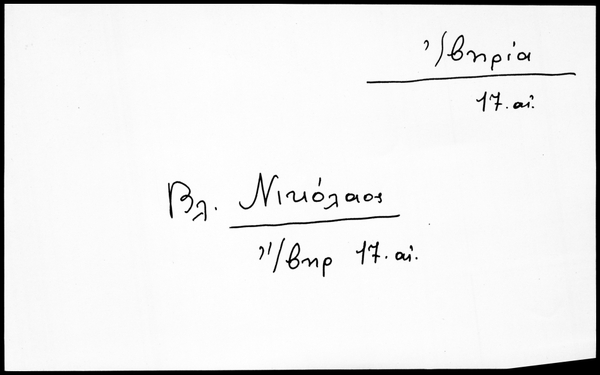 Ἰβηρία
17. αἰ.
Βλ. Νικόλαος
Ἴβηρ 17. αἰ.